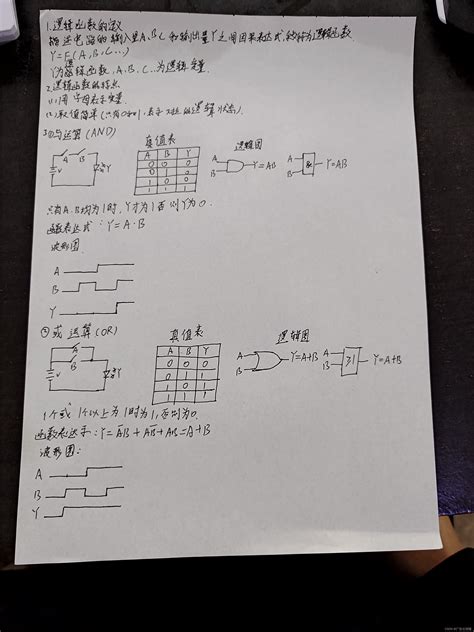 1.逻辑函数的定义
描述电路的输入量A,B,C和输出量Y之间因果表达式,的称为逻辑函数
Y=F(A,B,C...)
Y为逻辑函数,A,B,C...为逻辑变量.
2.逻辑函数的特点
(1)用字母表示变量.
(2)取值简单(只有0和1,表示对立的逻辑状态).
3①与运算(AND)
真值表
逻辑图
A B
V
Y
A B Y
0 0 0
0 1 0
1 0 0
1 1 1
A
B
Y=AB
A
B
&
Y=AB
只有A.B均为1时,Y才为1否则Y为0.
函数表达式:Y=A·B
波形图.
A
B
Y
②或运算(OR)
真值表
逻辑图
A
B
V
Y
A B Y
0 0 0
0 1 1
1 0 1
1 1 1
A
B
Y=A+B
A
B
≥1
Y=A+B
1个或1个以上为1时为1,否则为0.
函数表达示:Y=A̅B+AB̅+AB=A+B
波形图:
A
B
Y